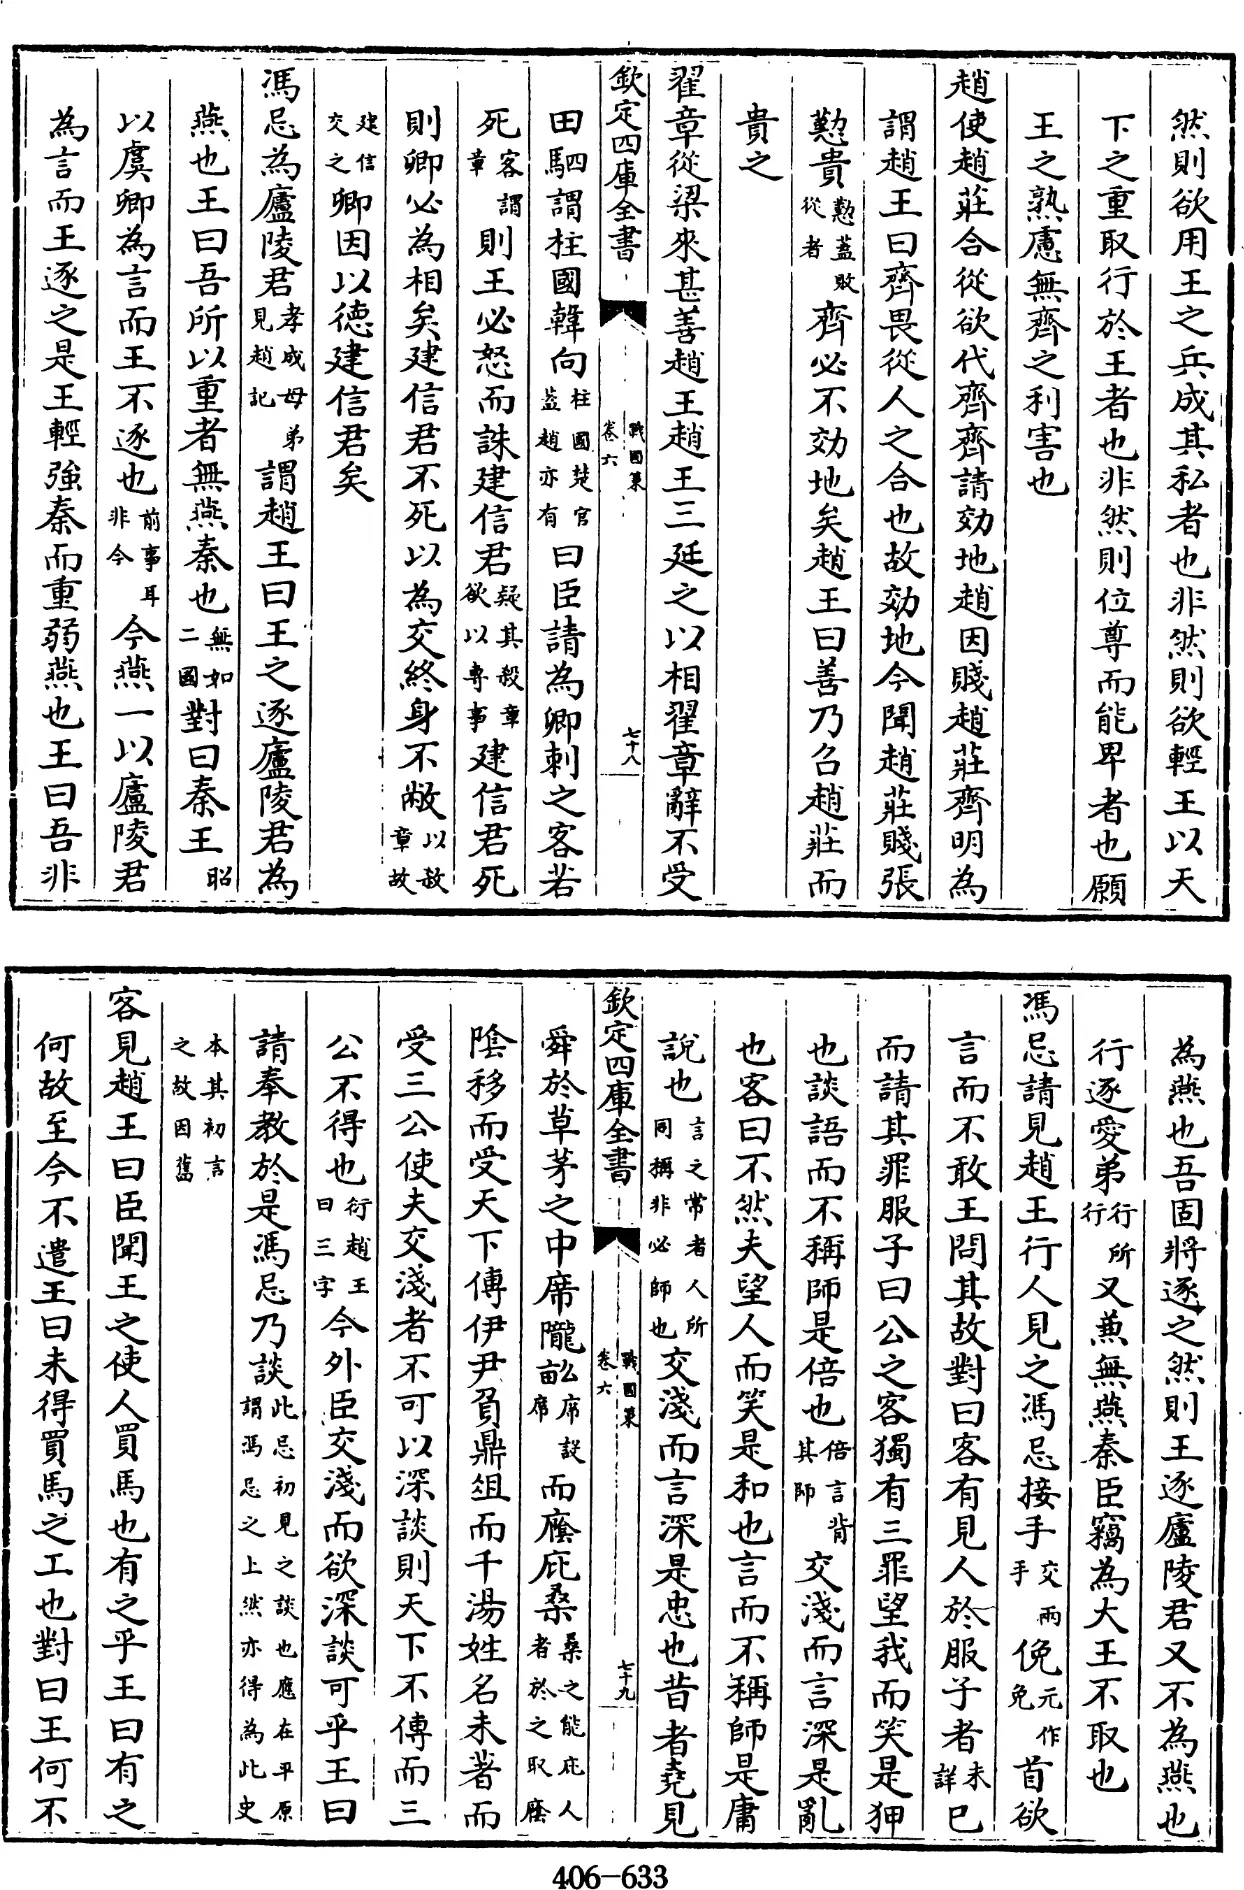 然則欲用王之兵成其私者也非然則欲輕王以天
下之重取行於王者也非然則位尊而能卑者也願
王之熟慮無齊之利害也
趙使趙莊合從欲代齊齊請効地趙因賤趙莊齊明為
謂趙王曰齊畏從人之合也故効地今聞趙莊賤張
懃貴懃蓋敗從者齊必不効地矣趙王曰善乃召趙莊而
貴之
翟章從梁來甚善趙王趙王三延之以相翟章辭不受
欽定四庫全書 戰國策 卷六 七十八
田駟謂柱國韓向柱國楚官蓋趙亦有曰臣請為卿刺之客若
死客謂章則王必怒而誅建信君疑其殺章欲以專事建信君死
則卿必為相矣建信君不死以為交終身不敝以敖章故
建信交之卿因以德建信君矣
馮忌為廬陵君孝成母弟見趙記謂趙王曰王之逐廬陵君為
燕也王曰吾所以重者無燕秦也無如二國對曰秦王昭
以虞卿為言而王不逐也前事耳非今今燕一以廬陵君
為言而王逐之是王輕強秦而重弱燕也王曰吾非
為燕也吾固將逐之然則王逐廬陵君又不為燕也
行逐愛弟行所行又兼無燕秦臣竊為大王不取也
馮忌請見趙王行人見之馮忌接手交兩手俛元作免首欲
言而不敢王問其故對曰客有見人於服子者未詳已
而請其罪服子曰公之客獨有三罪望我而笑是狎
也談語而不稱師是倍也倍言背其師交淺而言深是亂
也客曰不然夫望人而笑是和也言而不稱師是庸
說也言之常者人所同稱非必師也交淺而言深是忠也昔者堯見
欽定四庫全書 戰國策 卷六 七十九
舜於草茅之中席隴畝席設席而廕庇桑桑之能庇人者於之取廕
陰移而受天下傳伊尹負鼎俎而干湯姓名未著而
受三公使夫交淺者不可以深談則天下不傳而三
公不得也衍趙王曰三字今外臣交淺而欲深談可乎王曰
請奉教於是馮忌乃談此忌初見之談也應在平原謂馮忌之上然亦得為此史
本其初言之故因舊
客見趙王曰臣聞王之使人買馬也有之乎王曰有之
何故至今不遣王曰未得買馬之工也對曰王何不
406-633